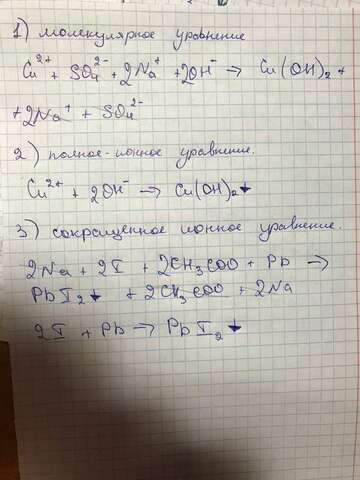 1) молекулярное уравнение
Cu²⁺ + SO₄²⁻ + 2Na⁺ + 2OH⁻ → Cu(OH)₂ +
+ 2Na⁺ + SO₄²⁻
2) полное-ионное уравнение.
Cu²⁺ + 2OH⁻ → Cu(OH)₂↓
3) сокращенное ионное уравнение.
2Na + 2I + 2CH₃COO + Pb →
PbI₂↓ + 2CH₃COO + 2Na
2I + Pb → PbI₂↓